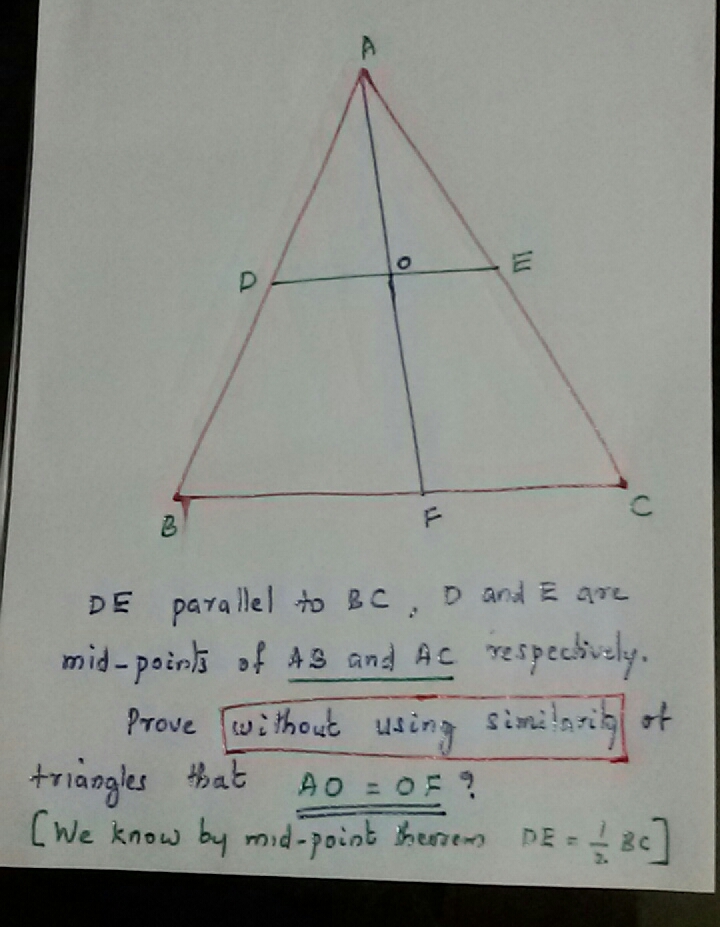 A
D
O
E
B
F
C
DE parallel to BC, D and E are
mid-points of AB and AC respectively.
Prove without using similarity of
triangles that AO = OF ?
[We know by mid-point theorem DE = 1/2 BC]